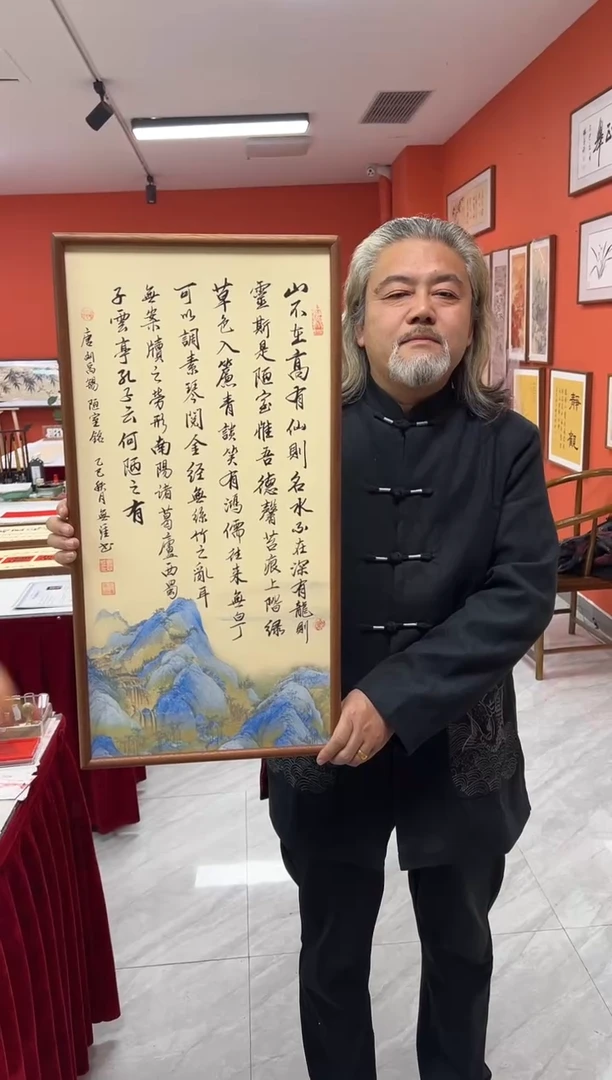 山不在高有仙則名水不在深有龍則
靈斯是陋室惟吾德馨苔痕上階綠
草色入簾青談笑有鴻儒往來無白丁
可以調素琴閱金經無絲竹之亂耳
無案牘之勞形南陽諸葛廬西蜀
子雲亭孔子云何陋之有
唐劉禹錫 陋室銘 乙巳秋月 無涯书
靜觀